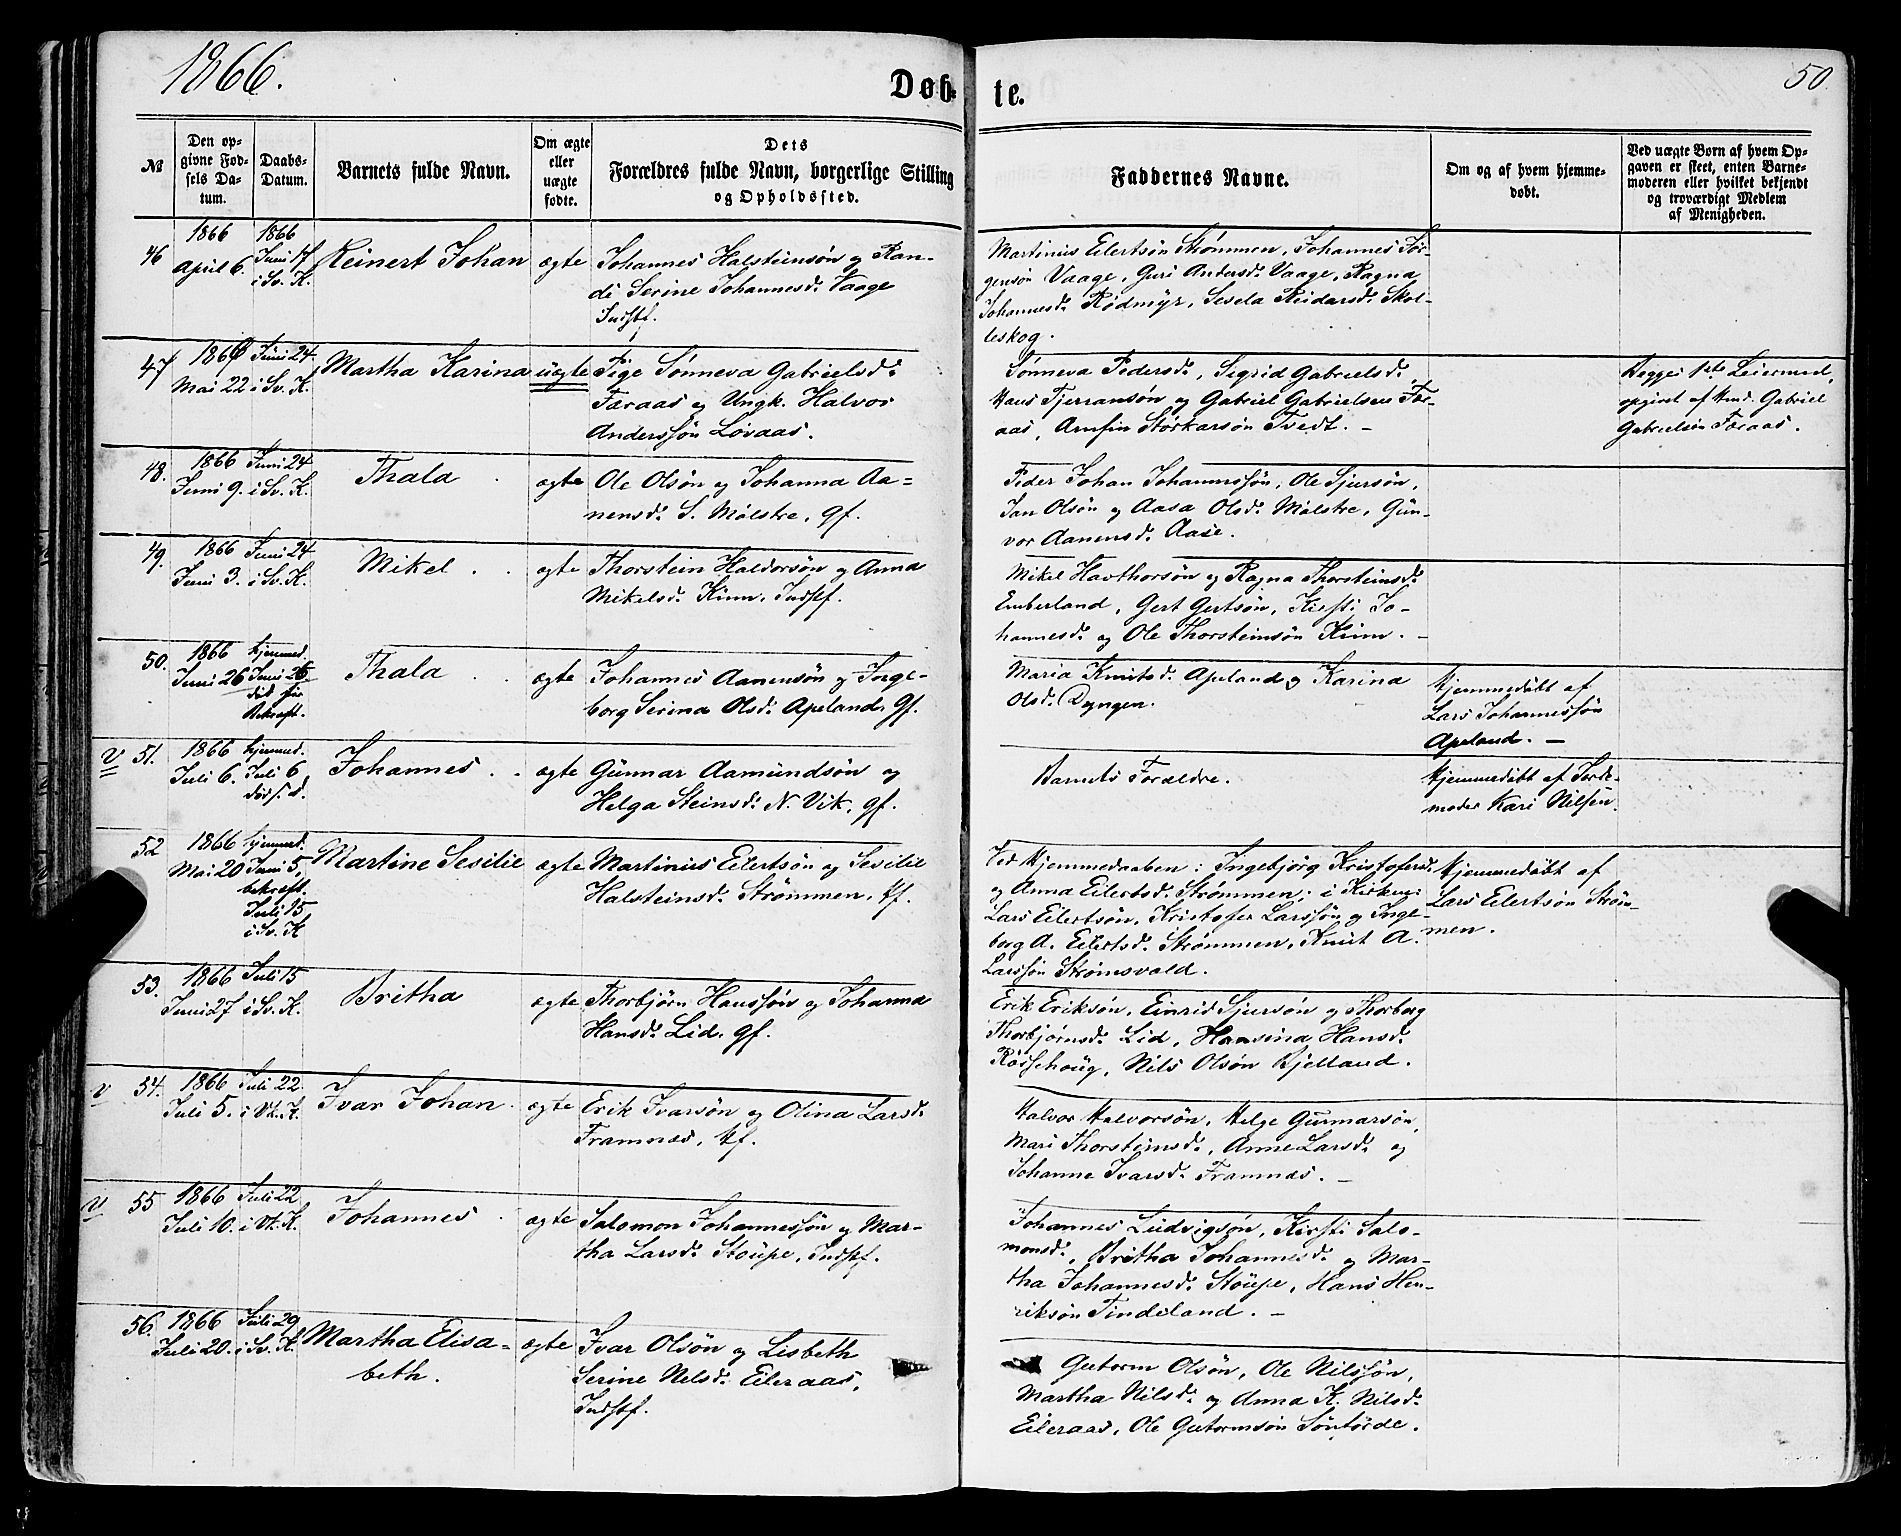 1866.
Døb-
te.
50.
№
Den op-
givne Fød-
sels Da-
tum.
Daabs-
Datum.
Barnets fulde Navn.
Om ægte
eller
uægte
fødte.
Dets
Forældres fulde Navn, borgerlige Stilling
og Opholdssted.
Faddernes Navne.
Om og af hvem hjemme-
døbt.
Ved uægte Børn af hvem Op-
gaven er skeet, enten Barne-
moderen eller hvilket bekjendt
og troværdigt Medlem
af Menigheden.
46
1866
April 6.
1866
Juni 17
i Sv. K.
Reinert Johan
ægte
Johannes Halsteinsøn og Ran-
di Serine Johannesd. Vaage
Indstf.
Martinius Eilertsøn Strømmen, Johannes Jør-
gensøn Vaage, Guri Andersd. Vaage, Ragna
Johannesd. Rødmyr, Sesela Reidarsd. Skol-
leskog.
47
1866
Mai 22
Juni 24.
i Sv. K.
Martha Karina
uægte
Pige Sønneva Gabrielsd.
Færaas og Ungk. Halvor
Anderssøn Løvaas.
Sønneva Pedersd., Sigrid Gabrielsd.,
Hans Tjerransøn og Gabriel Gabrielsen Fær-
aas, Arnfin Storkarsøn Tvedt. -
Begges 1ste Leiermaal,
opgivet af Hmd. Gabriel
Gabrielsen Færaas.
48.
1866
Juni 9.
Juni 24
i Sv. K.
Thala
ægte
Ole Olsøn og Johanna Aa-
nensd. S. Mølstre, gf.
Peder Johan Johannessøn, Ole Sjursøn,
Jan Olsøn og Aasa Olsd. Mølstre, Gun-
vor Aanensd. Aase.
49.
1866
Juni 3.
Juni 24
i Sv. K.
Mikel
ægte
Thorstein Haldorsøn og Anna
Mikelsd. Kinn, Indstf.
Mikel Havthorsøn og Ragna Thorsteinsd.
Emberland, Gert Gertsøn, Kirsti Jo-
hannesd. og Ole Thorsteinsøn Kinn. -
50.
1866
Juni 26
hjemmed.
Juni 26
død før
Bekræft.
Thala
ægte
Johannes Aanensøn og Inge-
borg Serina Olsd. Apeland, gf.
Maria Knutsd. Apeland og Karina
Olsd. Dyngen.
Hjemmedøbt af
Lars Johannessøn
Apeland. -
V 51.
1866
Juli 6.
hjemmed.
Juli 6
død s. d.
Johannes
ægte
Gunnar Aamundsøn og
Helga Steinsd. N. Vik, gf.
Barnets Forældre.
Hjemmedøbt af Jorde-
moder Kari Nilsen.
52
1866
Mai 20
hjemmed.
Juni 5,
bekræft.
Juli 15
i Sv. K
Martine Sesilie
ægte
Martinius Eilertsøn og Sesilie
Halsteinsd. Strømmen, Hf.
Ved Hjemmedaaben: Ingebjørg Kristofersd.
og Anna Eilertsd. Strømmen; i Kirken:
Lars Eilertsøn, Kristofer Larssøn og Inge-
borg A. Eilertsd. Strømmen, Knut A.
Larssøn Strømsvold.
Hjemmedøbt af
Lars Eilertsøn Strøm-
men.
53.
1866
Juni 27
Juli 15
i Sv. K.
Britha
ægte
Thorbjørn Hanssøn og Johanna
Hansd. Lid. gf.
Erik Eriksøn, Einrid Sjursøn og Thorborg
Thorbjørnsd. Lid, Hansina Hansd.
Røisehoug, Nils Olsøn Bjelland.
V 54.
1866
Juli 5.
Juli 22.
i Vk. K.
Ivar Johan
ægte
Erik Ivarsøn og Olina Larsd.
Framnæs, Hf.
Halvor Halvorsøn, Helge Gunnarsøn,
Mari Thorsteinsd., Anne Larsd. og
Johanne Ivarsd. Framnæs. -
V 55
1866
Juli 10.
Juli 22
i Vk. K.
Johannes
ægte
Salomon Johannessøn og Mar-
tha Larsd. Støupe, Indstf.
Johannes Ludvigsøn, Kirsti Salo-
monsd., Britha Johannesd. og Mar-
tha Johannesd. Støupe, Hans Hen-
riksøn Tindeland. -
56.
1866
Juli 20.
Juli 29
i Sv. K.
Martha Elisa-
beth.
ægte
Ivar Olsøn og Lisbeth
Serine Nilsd. Eileraas,
Indstf.
Gutorm Olsøn, Ole Nilssøn,
Martha Nilsd. og Anna K. Nilsd.
Eileraas, Ole Gutormsøn Søntørde.